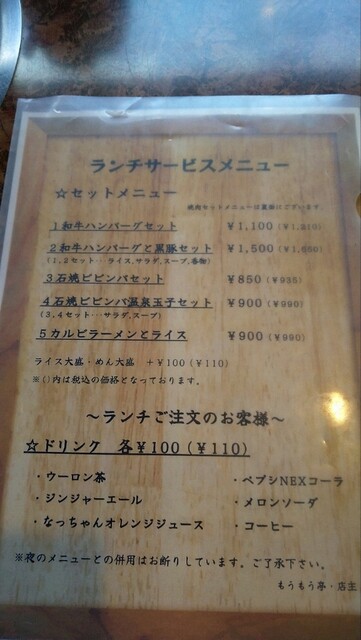 ランチサービスメニュー
☆セットメニュー
焼肉セットメニューは裏面にございます
1和牛ハンバーグセット ¥1,100(¥1,210)
2和牛ハンバーグと黒豚セット ¥1,500(¥1,650)
(1,2セット‥ライス,サラダ,スープ,香物)
3石焼ビビンバセット ¥850(¥935)
4石焼ビビンバ温泉玉子セット ¥900(¥990)
(3,4セット‥サラダ,スープ)
5カルビラーメンとライス ¥900(¥990)
ライス大盛・めん大盛 +¥100(¥110)
※()内は税込の価格となっております。
～ランチご注文のお客様～
☆ドリンク 各¥100(¥110)
・ウーロン茶 ・ペプシNEXコーラ
・ジンジャーエール ・メロンソーダ
・なっちゃんオレンジジュース ・コーヒー
※夜のメニューとの併用はお断りしています。ご了承下さい。
もうもう亭・店主